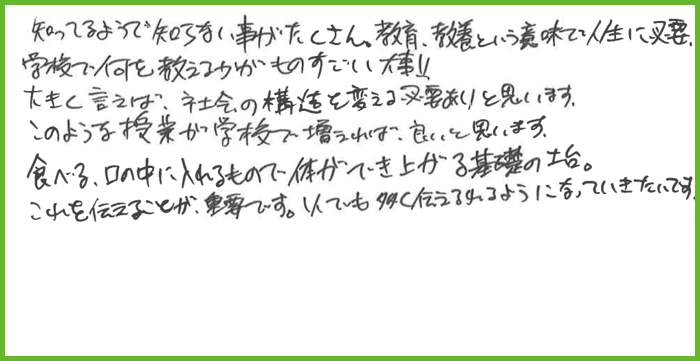 知ってるようで知らない事がたくさん。教育、教養という意味で人生に必要。
学校で何を教えるかがものすごい大事!!
大きく言えば、社会の構造を変える必要ありと思います。
このような授業が学校で増えれば、良いと思います。
食べる、口の中に入れるもので体ができ上がる基礎の土台。
これを伝えることが、重要です。1人でも多く伝えられるようになっていきたいです。